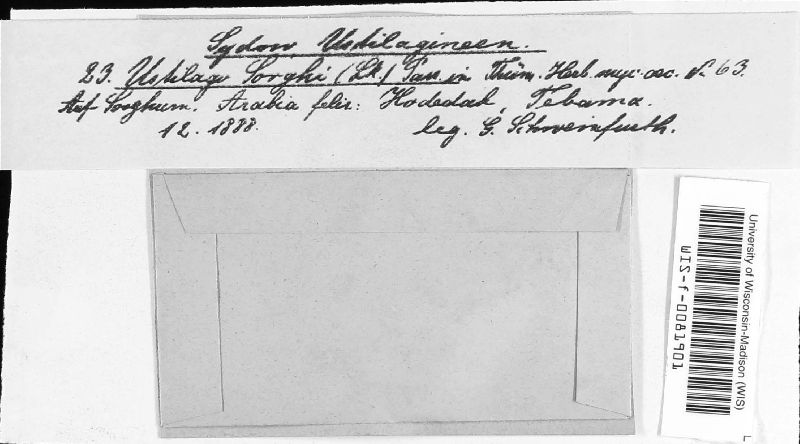 Sydow, Ustilagineen.
23. Ustilago Sorghi (Lk.) Pass. in Thüm. Herb. myc. oec. N. 63.
Auf Sorghum. Arabia felix: Hodedah, Tehama.
12. 1888. leg. G. Schweinfurth.
University of Wisconsin-Madison (WIS)
WIS-f-0081901